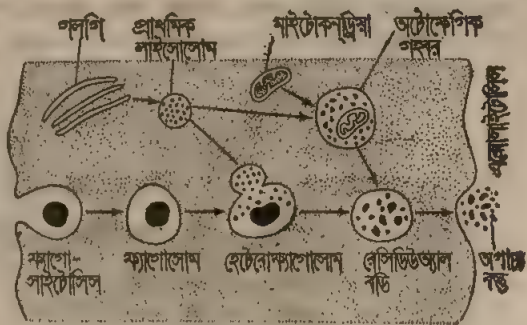 গলগি
প্রাথমিক
লাইসোসোম
মাইটোকন্ড্রিয়া
অটোফেগিক
গহ্বর
এক্সোসাইটোসিস
ফ্যাগো-
সাইটোসিস
ফ্যাগোসোম
হেটেরোফ্যাগোসোম
রেসিডিউঅ্যাল
বডি
অপাচ্য
বস্তু